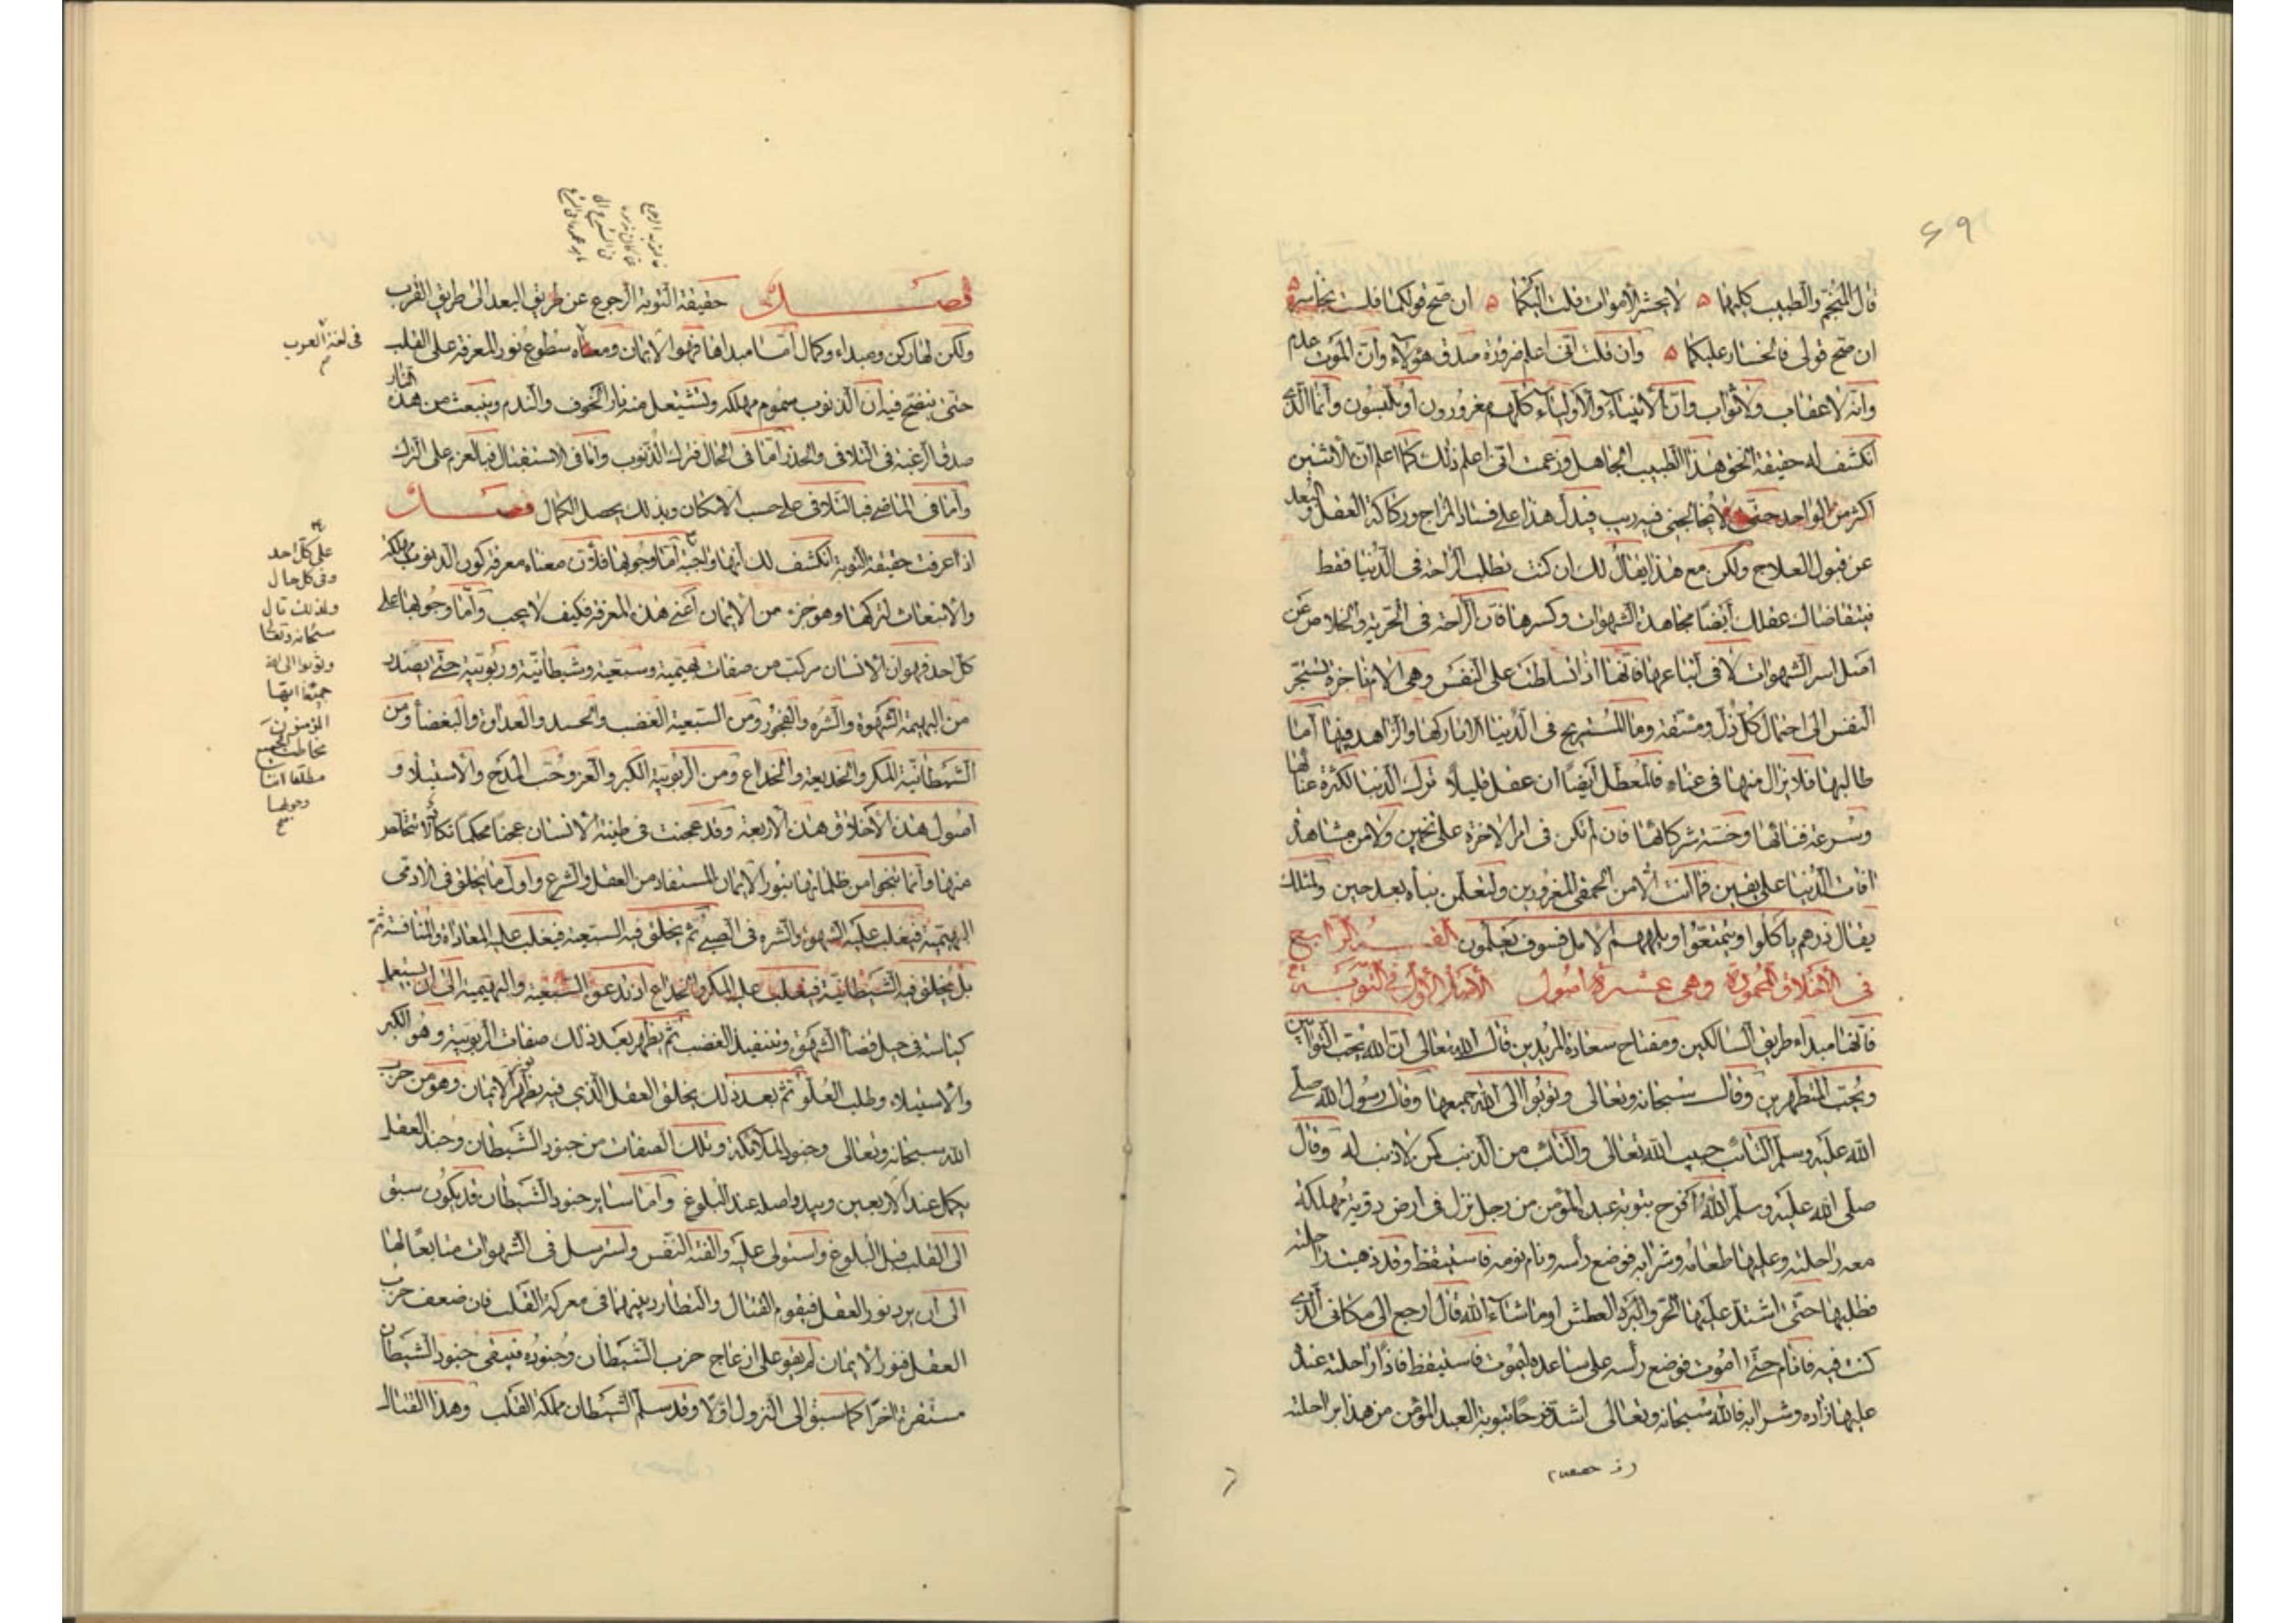 ٦٩
قال المنجم والطبيب كلاهما ٥ لا يحشر الأموات قلت اليكما ٥ ان صح قولكما فلست بخاسر ٥
ان صح قولى فالخسار عليكما ٥ وان قلت انى اعلم ضرورة صدق هؤلاء وان الموت عدم
وانه لا عقاب ولا ثواب وان الأنبياء والأولياء كلهم مغرورون او ملبسون وانما الذى
انكشف له حقيقة الحق هذا الطبيب الجاهل وزعمت انى اعلم ذلك كما اعلم ان الأثنين
اكثر من الواحد حتى لا يخالجنى فيه ريب فيدل هذا على فساد المزاج وركاكة العقل والبعد
عن قبول العلاج ولكن مع هذا يقال لك ان كنت تطلب الراحة فى الدنيا فقط
فيتقاضاك عقلك أيضا مجاهدة الشهوات وكسرها فان الراحة فى الحرية والخلاص عن
اصل اسر الشهوات لا فى اتباعها فانها اذا تسلطت على النفس وهى الام تستجر
النفس الى احتمال كل ذل ومشقة وما المستريح فى الدنيا الا تاركها والزاهد فيها اما
طالبها فلا يزال منها فى عناء فالمعطل ايضا ان عقل قليلا ترك الدنيا لكثرة عنائها
وسرعة فنائها وخسة شركائها فان لم تكن فى امر الاخرة على تخمين ولا من مشاهدة
افات الدنيا على يقين فما انت الا من الحمقى المغرورين ولتعلمن نباه بعد حين ولمثلك
يقال ذرهم ياكلوا ويتمتعوا ويلههم الامل فسوف يعلمون القسم الرابع
فى الأخلاق المحمودة وهى عشرة اصول الأصل الأول فى التوبة
فانها مبداء طريق السالكين ومفتاح سعادة المريدين قال الله تعالى ان الله يحب التوابين
ويحب المتطهرين وقال سبحانه وتعالى وتوبوا الى الله جميعا وقال رسول الله صلى
الله عليه وسلم التائب حبيب الله تعالى والتائب من الذنب كمن لا ذنب له وقال
صلى الله عليه وسلم الله افرح بتوبة عبده المؤمن من رجل نزل فى ارض دوية مهلكة
معه راحلته وعليها طعامه وشرابه فوضع رأسه ونام نومة فاستيقظ وقد ذهبت راحلته
فطلبها حتى اشتد عليه الحر والعطش او ما شاء الله قال ارجع الى مكانى الذى
كنت فيه فانام حتى اموت فوضع رأسه على ساعده ليموت فاستيقظ فاذا راحلته عنده
عليها زاده وشرابه فالله سبحانه وتعالى اشد فرحا بتوبة العبد المؤمن من هذا براحلته
فصل حقيقة التوبة الرجوع عن طريق البعد الى طريق القرب
ولكن لها ركن ومبداء وكمال أما مبداها فهو الايمان ومعناه سطوع نور المعرفة على القلب
حتى يتضح فيه ان الذنوب سموم مهلكة وتشتعل منه نار الخوف والندم وينبعث من هذه النار
صدق الرغبة فى التلافى والحذر اما فى الحال فترك الذنوب واما فى الاستقبال فبالعزم على الترك
وأما فى الماضى فبالتلافى على حسب الامكان وبذلك يحصل الكمال فصل
اذا عرفت حقيقة التوبة انكشف لك انها واجبة أما وجوبها فلأن معناه معرفة كون الذنوب مهلكة
والانبعاث لتركها وهو جزء من الايمان أعنى هذه المعرفة فكيف لا يجب وأما وجوبها على
كل احد فهو ان الانسان مركب من صفات بهيمية وسبعية وشيطانية وربوبية حتى يصدر
من البهيمية الشهوة والشره والفجور ومن السبعية الغضب والحسد والعداوة والبغضا ومن
الشيطانية المكر والخديعة والخداع ومن الربوبية الكبر والعز وحب المدح والاستيلاء و
اصول هذه الأخلاق هذه الأربعة وقد عجنت فى طينة الانسان عجنا محكما لا يكاد يتخلص
منها وانما ينجوا من ظلماتها بنور الايمان المستفاد من العقل والشرع واول ما يخلق فى الادمى
البهيمية فيغلب عليه الشهوة والشره فى الصبى ثم يخلق فيه السبعية فيغلب عليه المعاداة والمنافسة ثم
يخلق فيه الشيطانية فيغلب عليه المكر والخداع اذ تدعو السبعية والبهيمية الى ان يستعمل
كياسته فى حيل قضا الشهوة وتنفيذ الغضب ثم يظهر بعد ذلك صفات الربوبية وهو الكبر
والاستيلاء وطلب العلو ثم بعد ذلك يخلق العقل الذى فيه يظهر نور الايمان وهو من حزب
الله سبحانه وتعالى وجنود الملائكة وتلك الصفات من جنود الشيطان وجند العقل
يكمل عند الاربعين ويبدو اصله عند البلوغ واما ساير جنود الشيطان قد يكون سبق
الى القلب قبل البلوغ واستولى عليه والفته النفس واسترسل فى الشهوات متابعا لها
الى ان يرد نور العقل فيقوم القتال والتطارد بينهما فى معركة القلب فان ضعف حزب
العقل فنور الايمان لم يقو على ازعاج حزب الشيطان وجنوده فيبقى جنود الشيطان
مستقرة اخرا كما سبق الى النزول اولا وقد سلم الشيطان مملكة القلب وهذا القتال
فى لغة العرب
على كل احد
وفى كل حال
ولذلك قال
سبحانه وتعالى
وتوبوا الى الله
جميعا ايها
المؤمنون
مخاطب الجميع
مطلقا اما
وجوبها